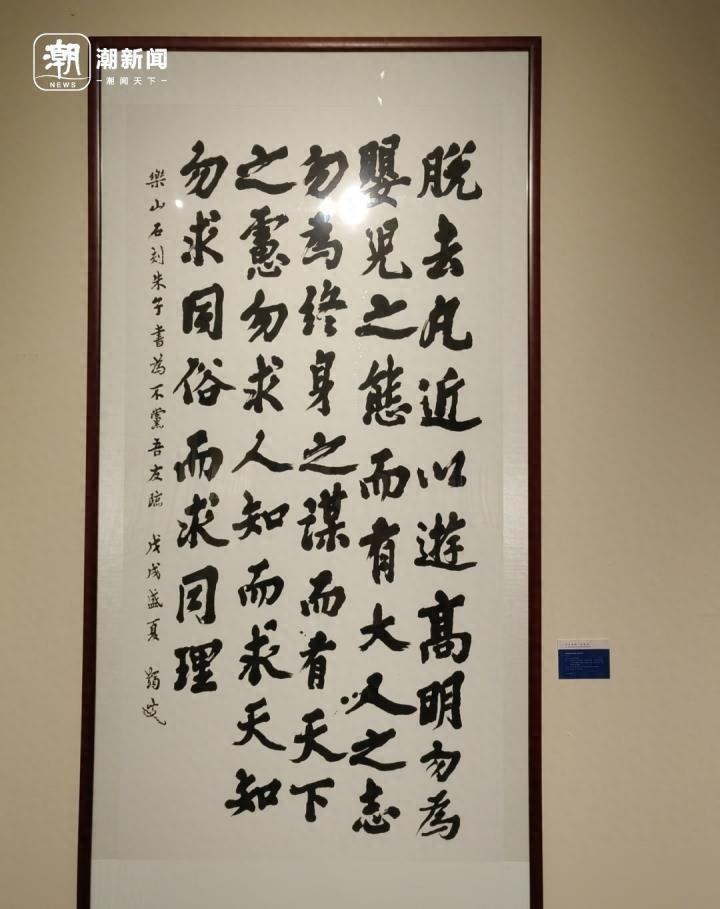 潮新闻
潮闻天下
NEWS
脱去凡近以遊高明勿為
嬰児之態而有大人之志
勿為終身之謀而有天下
之慮勿求人知而求天知
勿求同俗而求同理
樂山石刻朱子書為不黨吾友臨 戊戌盛夏